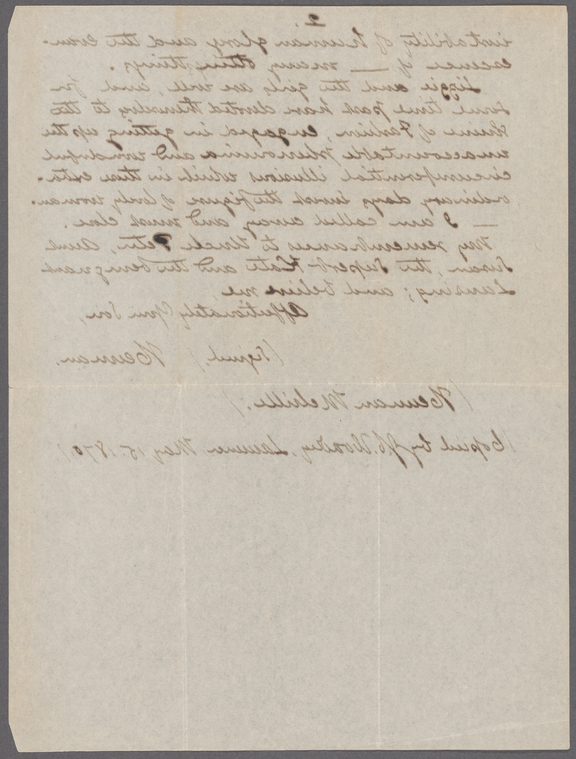 2.
instability of human glory and the evan-
escence of — many other things.
Lizzie and the girls are well, and for
some time past have devoted themselves to the
shrine of Fashion, engaged in getting up the
unaccountable phenomena and wonderful
circumferential illusions which in these extra-
ordinary days invest the figure of lovely woman.
— I am called away and must close.
My remembrances to Uncle Peter, Aunt
Susan, the superb Kate and the benignant
Lansing; and believe me
Affectionately Your Son,
(Signed) Herman.
(Herman Melville.)
(Copied by May 15. 1870)